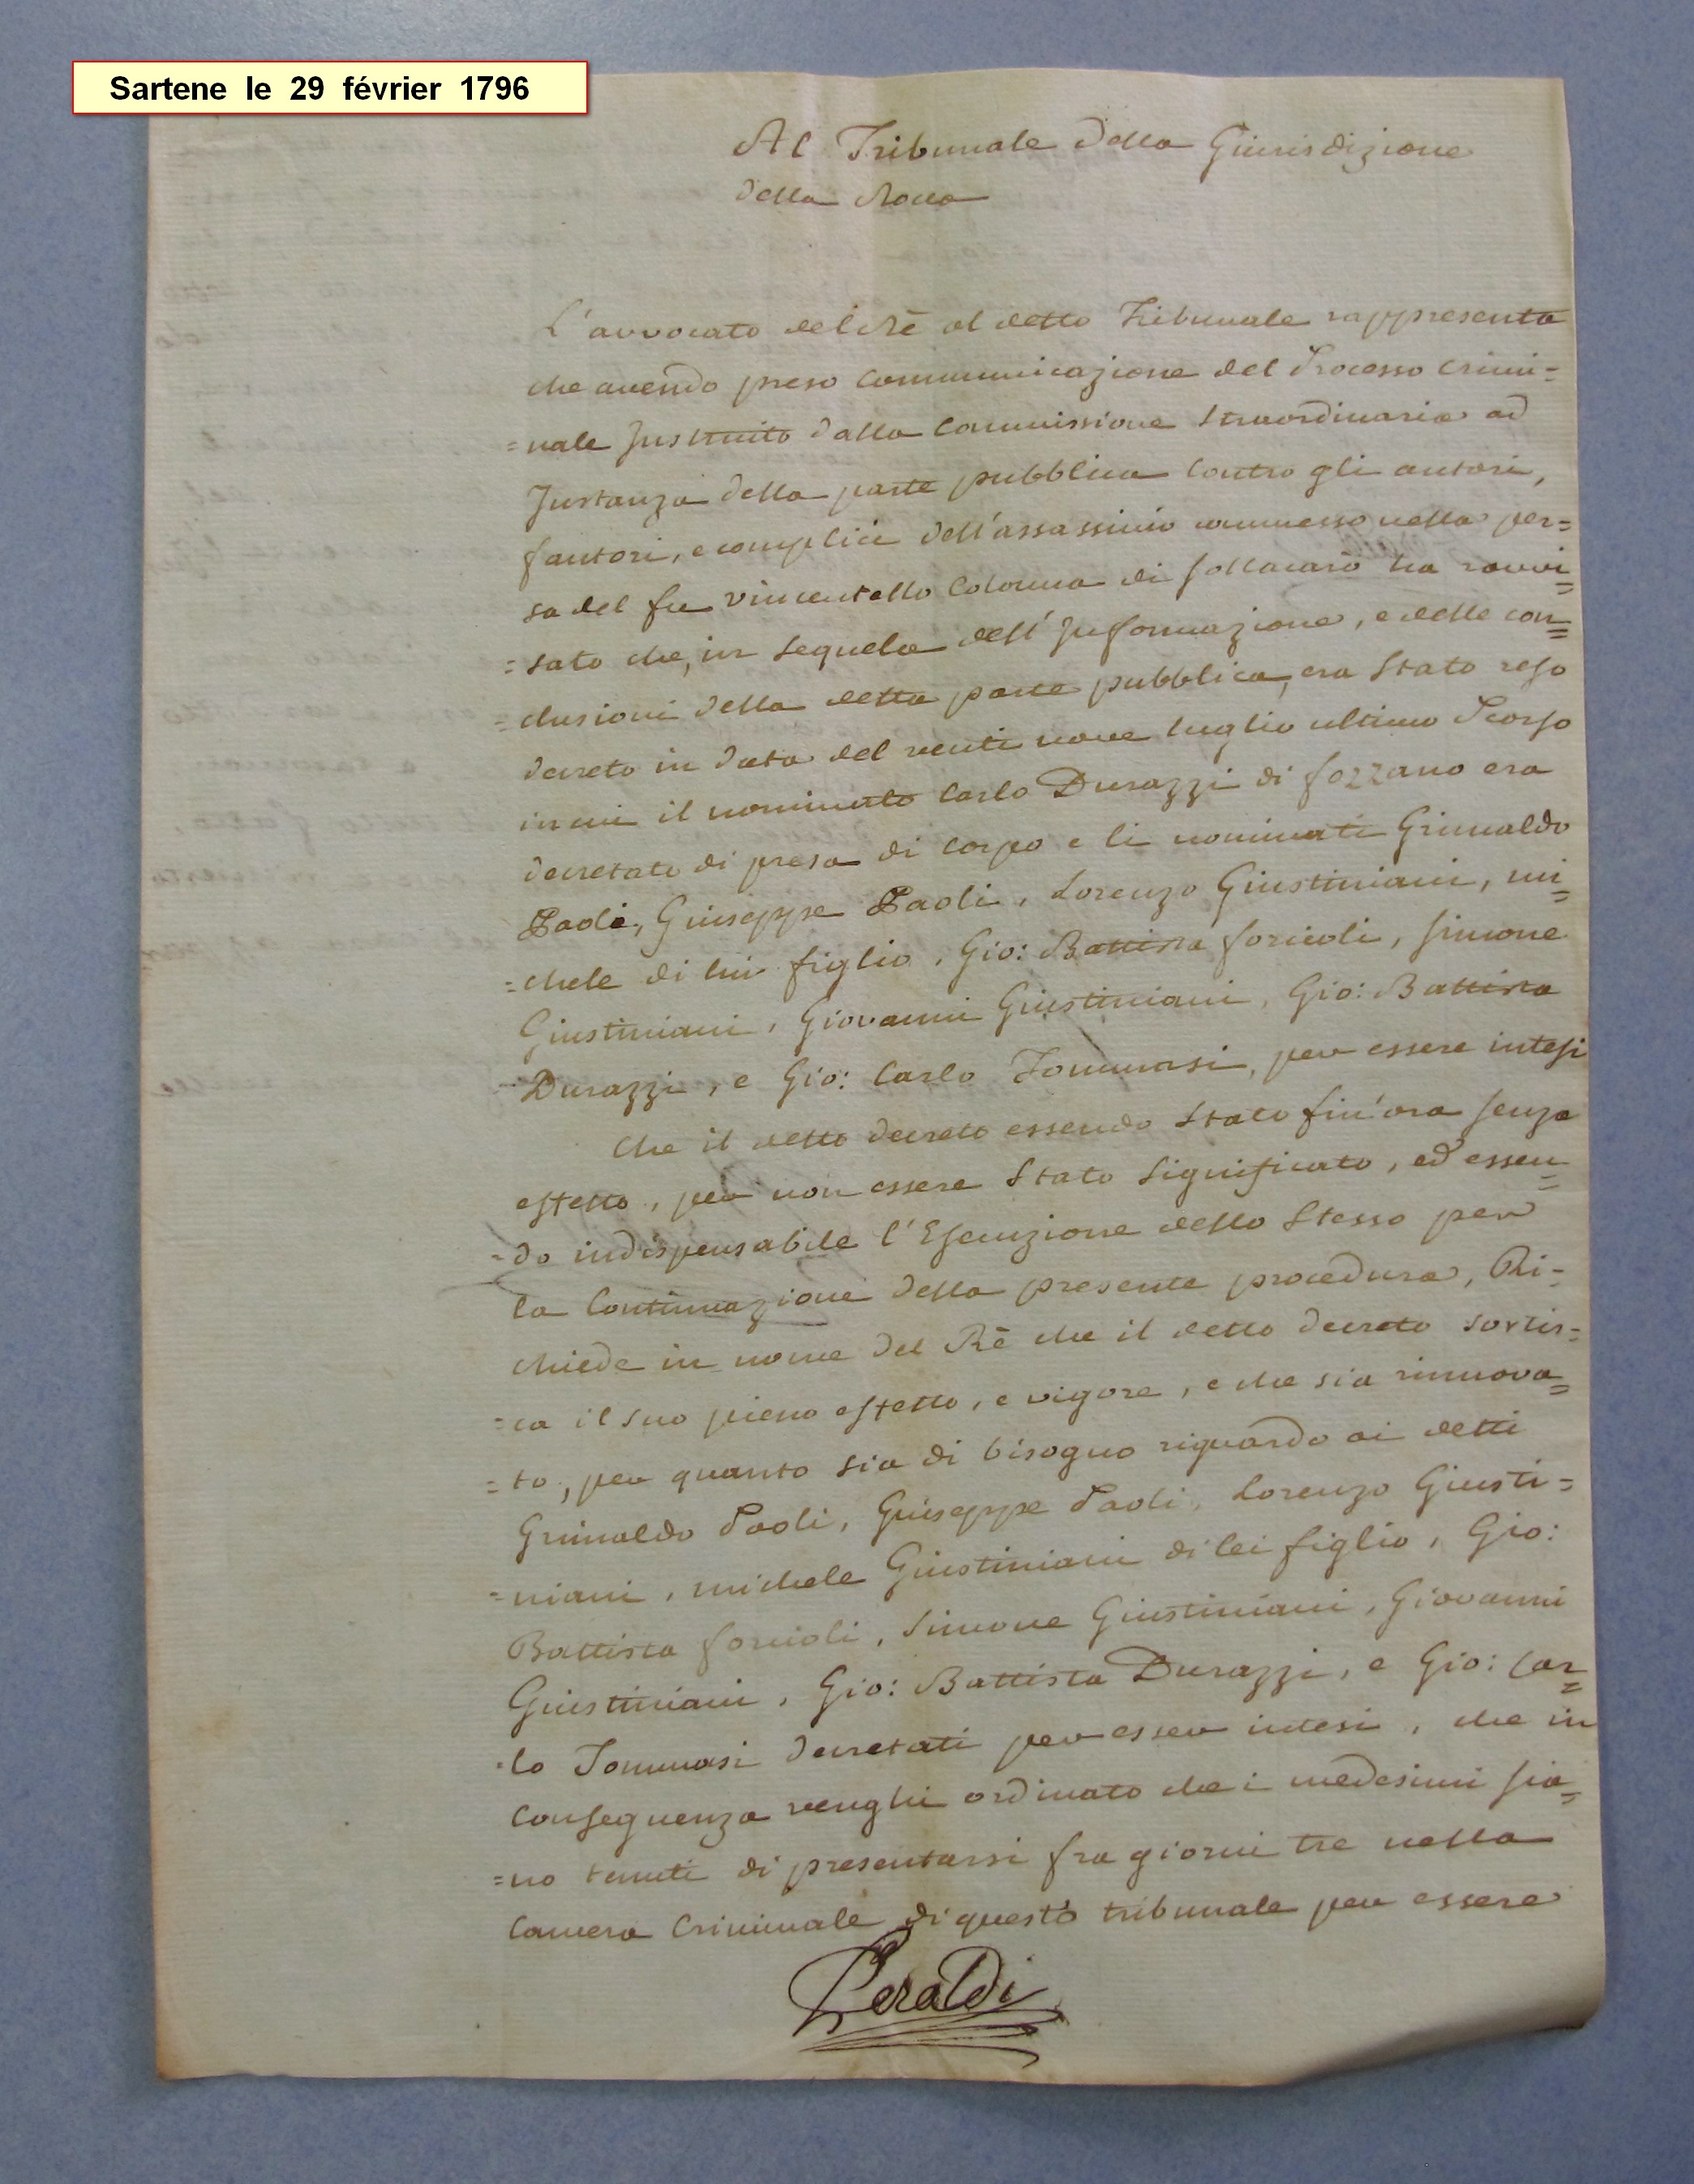 Sartene le 29 février 1796
Al Tribunale della Giurisdizione
della Rocca
L'avvocato del Rè al detto Tribunale rappresenta
che avendo preso communicazione del Processo crimi=
=nale Instruito dalla Commissione Straordinaria ad
Instanza della parte pubblica contro gli autori,
fautori, e complici dell'assassinio commesso nella per=
sa del fu vincentello Colonna di sollacarò ha ravvi=
=sato che, in sequela dell'Informazione, e delle con=
=clusioni della detta parte pubblica, era stato reso
decreto in data del venti nove luglio ultimo Scorso
in cui il nominato Carlo Durazzi di fozzano era
decretato di presa di corpo e li nominati Grimaldo
Paoli, Giuseppe Paoli, Lorenzo Giustiniani, mi=
=chele di lui figlio, Gio: Battista forcioli, simone
Giustiniani, Giovanni Giustiniani, Gio: Battista
Durazzi, e Gio: Carlo Tommasi, per essere intesi
Che il detto decreto essendo stato fin'ora senza
effetto, per non essere stato significato, ed essen=
=do indispensabile l'Esecuzione dello stesso per
la Continuazione della presente procedura, Ri=
chiede in nome del Rè che il detto decreto sortis=
=ca il suo pieno effetto, e vigore, e che sia rinnova=
=to, per quanto sia di bisogno riguardo ai detti
Grimaldo Paoli, Giuseppe Paoli, Lorenzo Giusti=
=niani, michele Giustiniani di lei figlio, Gio:
Battista forcioli, simone Giustiniani, Giovanni
Giustiniani, Gio: Battista Durazzi, e Gio: Car=
=lo Tommasi decretati per esser intesi, che in
Conseguenza venghi ordinato che i medesimi sia=
=no tenuti di presentarsi fra giorni tre nella
Camera Criminale di questo tribunale per essere
Peraldi